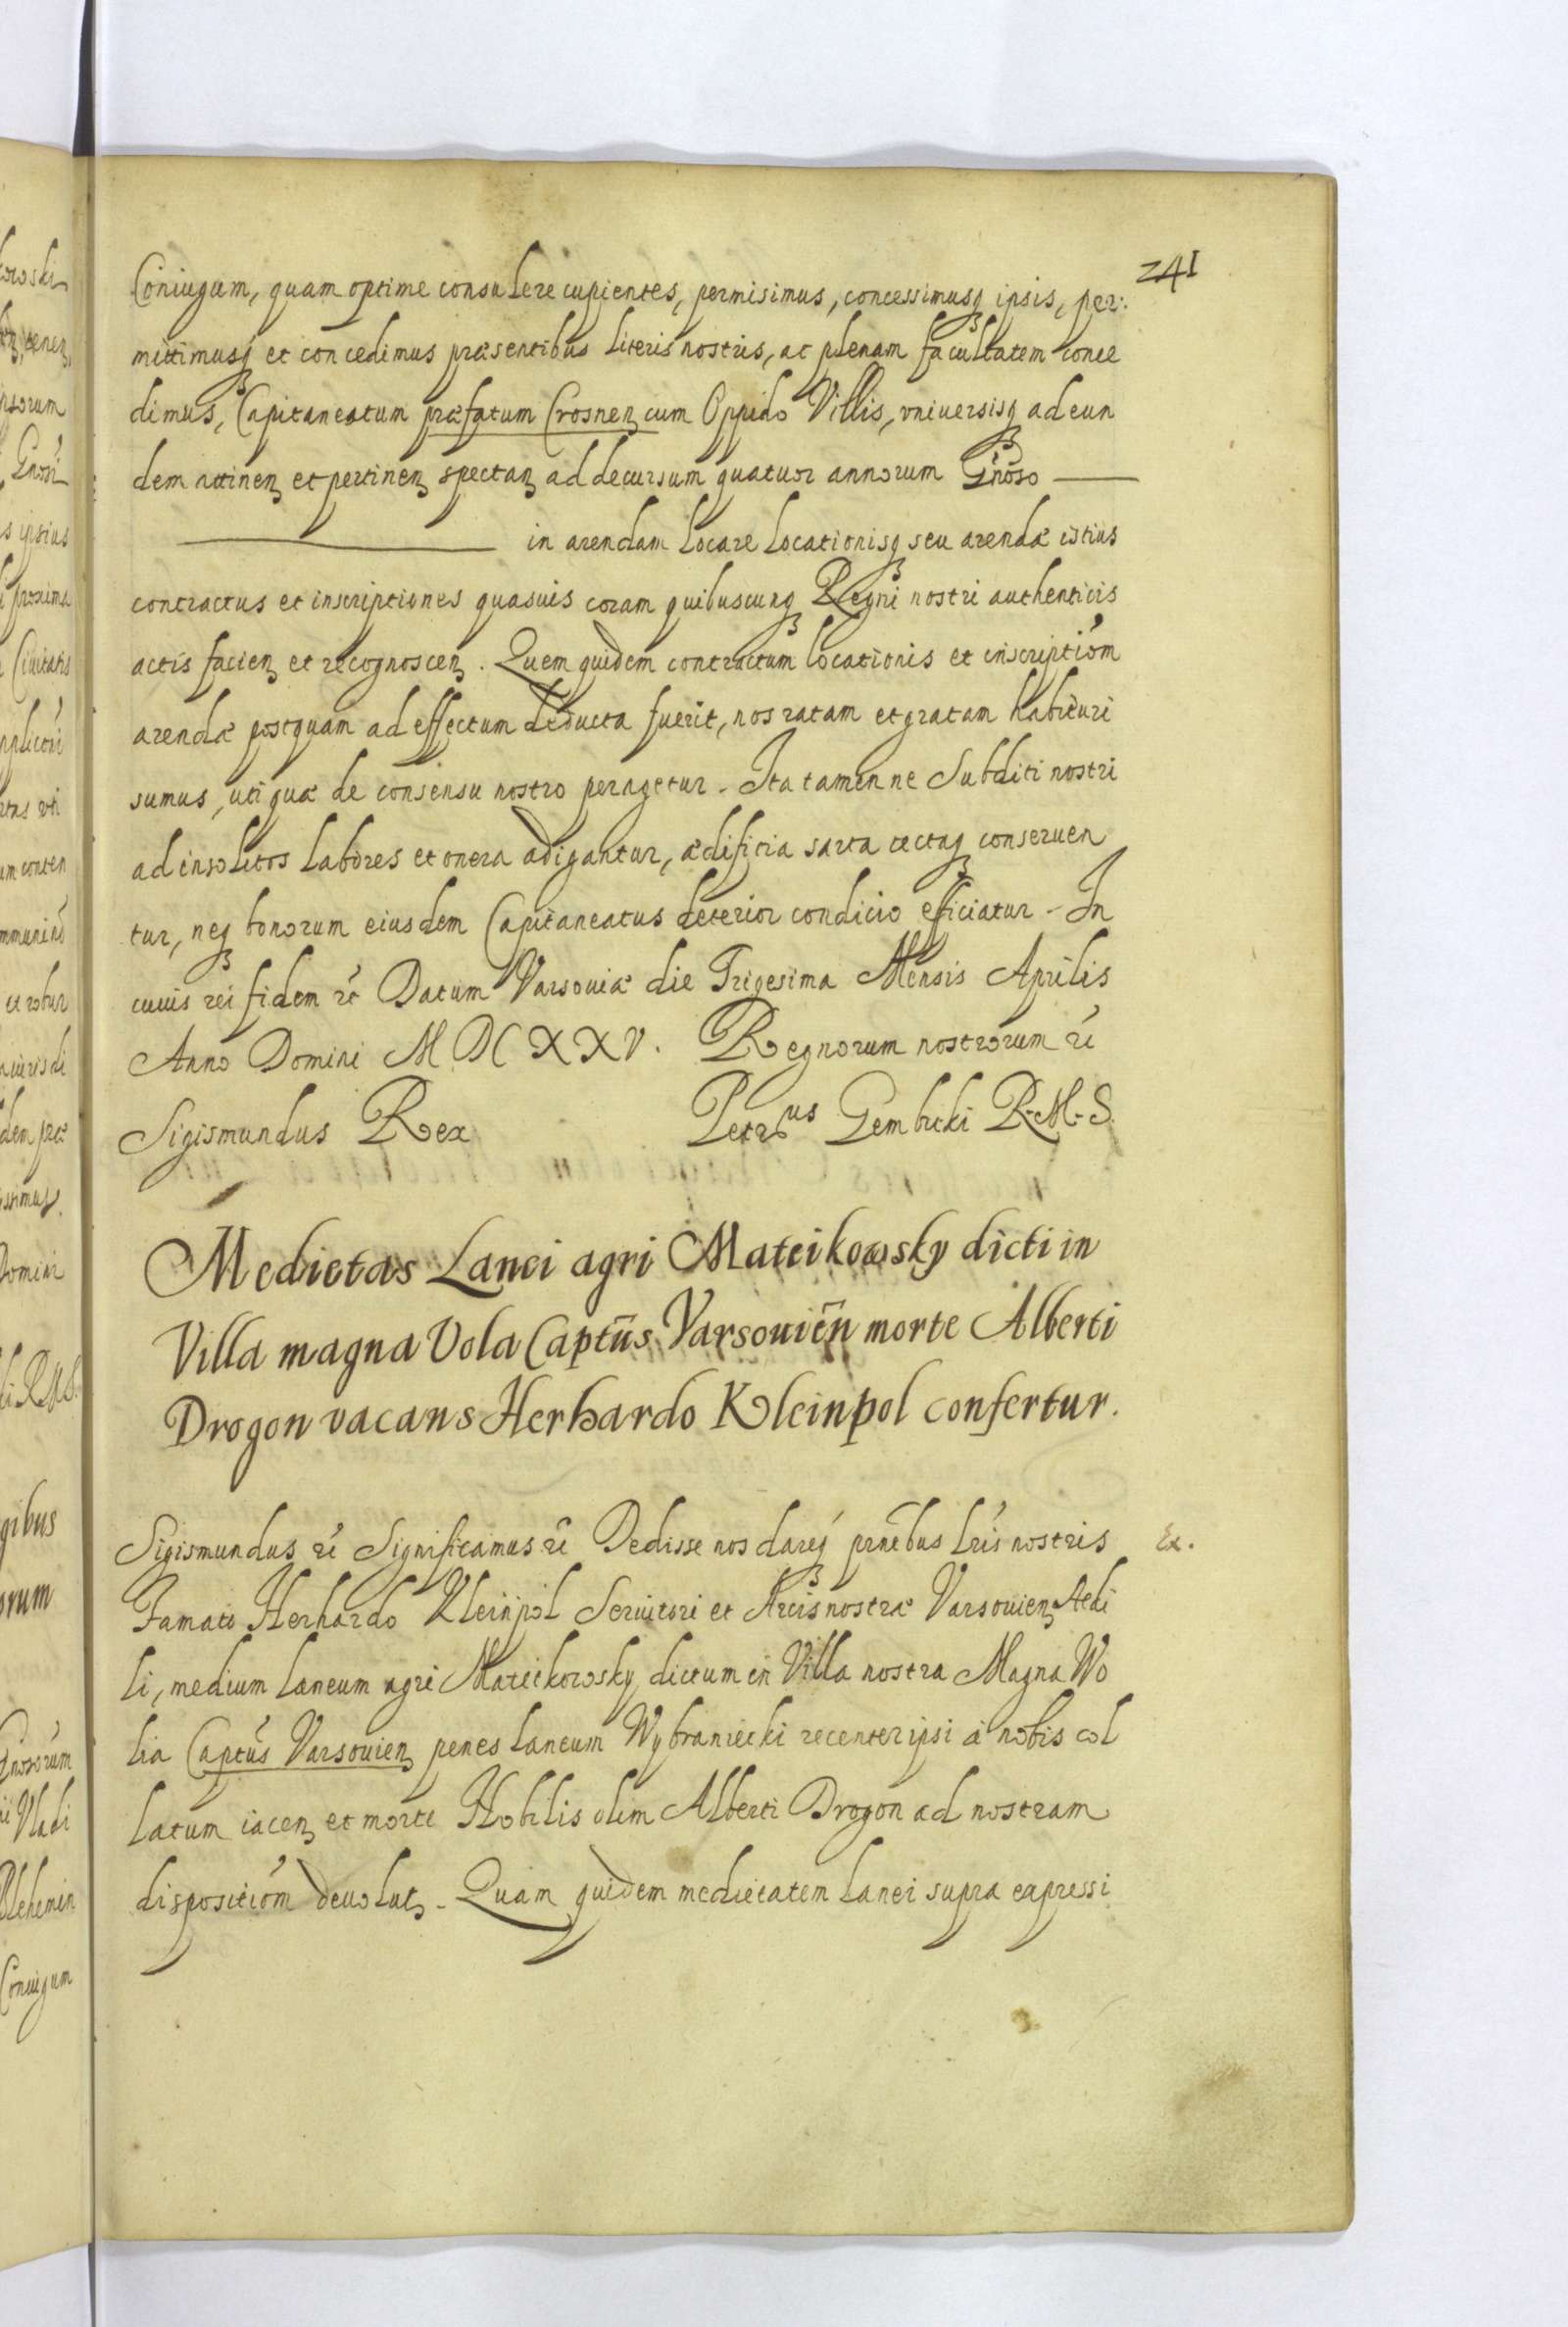 241
Coniugum, quam optime consulere cupientes, permisimus, concessimusq3 ipsis, per:
mittimusq3 et concedimus præsentibus literis nostris, ac plenam facultatem conce
dimus, Capitaneatum præfatum Crosnen cum Oppido Villis, vniuersisq3 ad eun
dem attinen et pertinen spectan ad decursum quatuor annorum Gnoso
in arendam locare locationisq3 seu arendæ istius
contractus et inscriptiones quasuis coram quibuscunq3 Regni nostri authenticis
actis facien et recognoscen. Quem quidem contractum locationis et inscriptiom
arendæ postquam ad effectum deducta fuerit, nos ratam et gratam habituri
sumus, uti quæ de consensu nostro peragetur. Ita tamen ne Subditi nostri
ad insolitos labores et onera adigantur, ædificia sarta tectaq3 conseruen
tur, neq3 bonorum eiusdem Capitaneatus deterior condicio efficiatur. In
cuius rei fidem etc Datum Varsouiæ die Trigesima Mensis Aprilis
Anno Domini MDCXXV. Regnorum nostrorum etc
Sigismundus Rex Petrus Gembicki R.M.S.
Medietas Lanei agri Mateikowsky dicti in
Villa magna Vola Captūs Varsouien̄ morte Alberti
Drogon vacans Herhardo Kleinpol confertur.
Sigismundus etc Significamus etc Dedisse nos dareq3 prñtibus lris nostris
Ex.
Famato Herhardo Kleinpol Seruitori et Arcis nostræ Varsouien Aedi
li, medium laneum agri Mateikowsky dictum in Villa nostra Magna Wo
lia Captus Varsouien penes laneum Wybraniecki recenter ipsi à nobis col
latum iacen et morte Nobilis olim Alberti Drogon ad nostram
dispositiom deuolut. Quam quidem medietatem lanei supra expressi